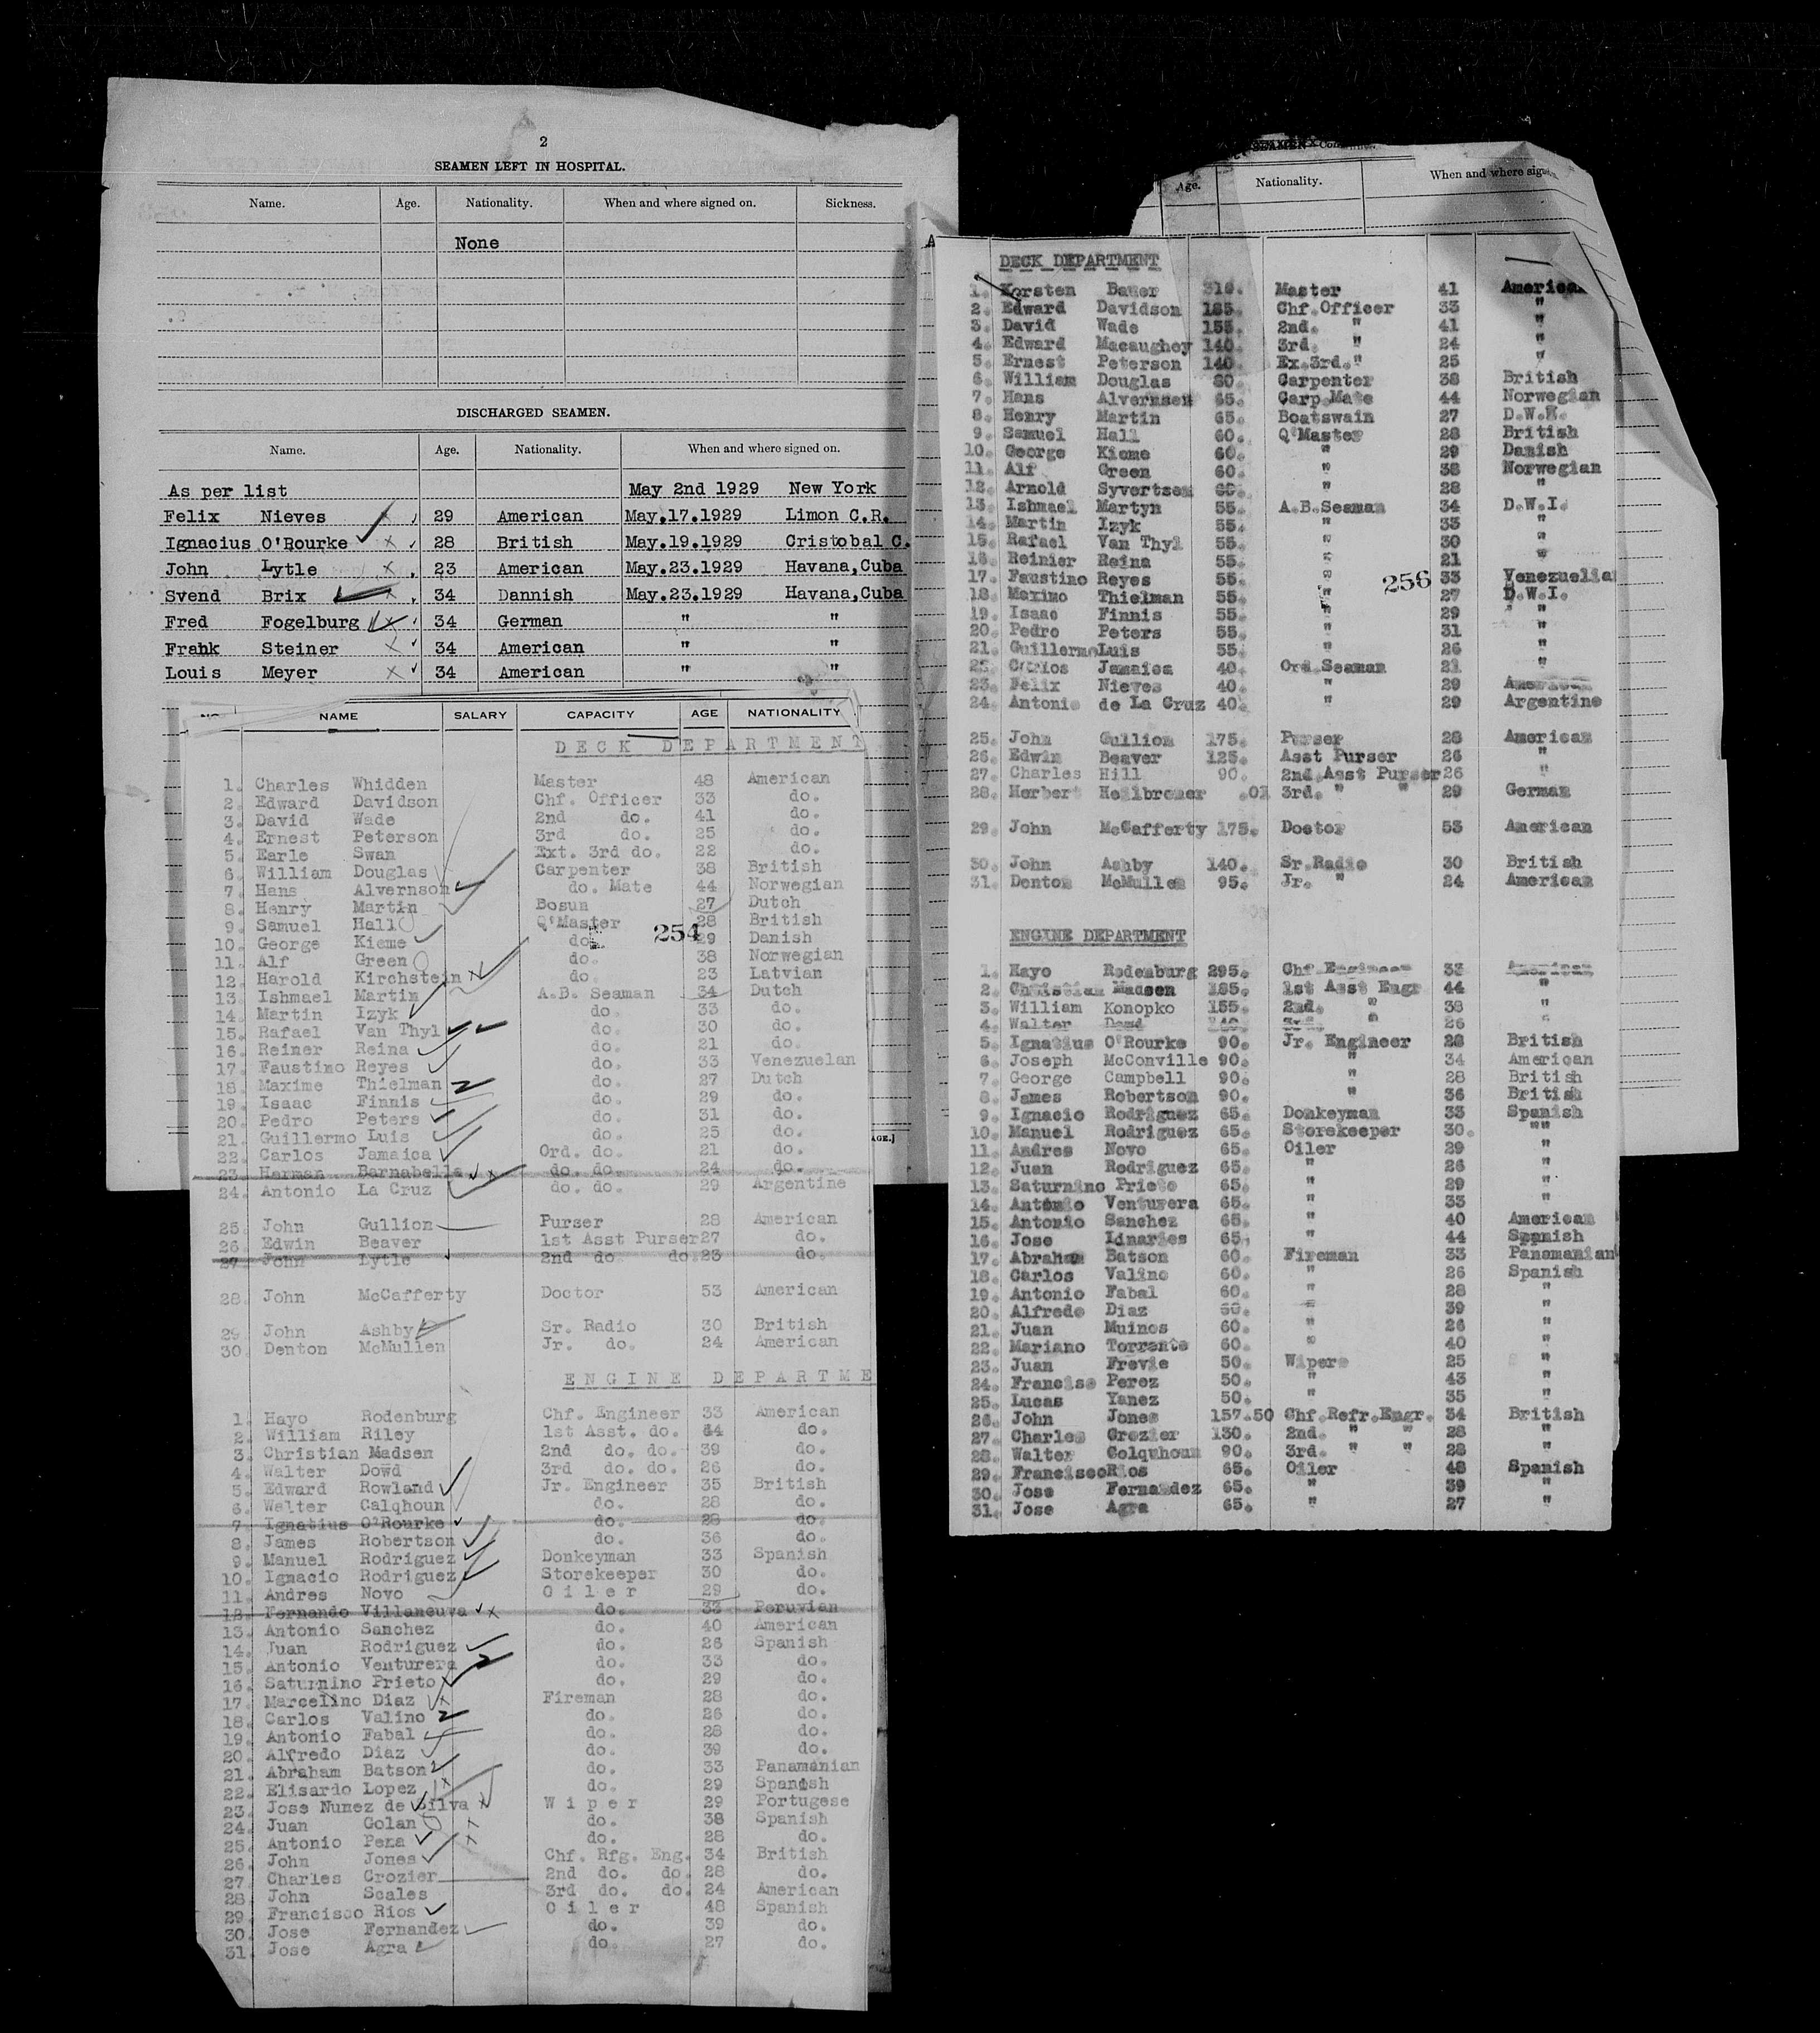 2
SEAMEN LEFT IN HOSPITAL.
Name. Age. Nationality. When and where signed on. Sickness.
None
DISCHARGED SEAMEN.
Name. Age. Nationality. When and where signed on.
As per list May 2nd 1929 New York
Felix Nieves 29 American May.17.1929 Limon C.R.
Ignacius O'Rourke 28 British May.19.1929 Cristobal C.
John Lytle 23 American May.23.1929 Havana,Cuba
Svend Brix 34 Dannish May.23.1929 Havana,Cuba
Fred Fogelburg 34 German " "
Frank Steiner 34 American " "
Louis Meyer 34 American " "
NAME SALARY CAPACITY AGE NATIONALITY
DECK DEPARTMENT
1. Charles Whidden Master 48 American
2. Edward Davidson Chf. Officer 33 do.
3. David Wade 2nd do. 41 do.
4. Ernest Peterson 3rd do. 25 do.
5. Earle Swan Ext. 3rd do. 22 do.
6. William Douglas Carpenter 38 British
7. Hans Alvernson do. Mate 44 Norwegian
8. Henry Martin Bosun 27 Dutch
9. Samuel Hall Q'Master 28 British
10. George Kieme do. 29 Danish
254
11. Alf Green do. 38 Norwegian
12. Harold Kirchstein do. 23 Latvian
13. Ishmael Martin A.B. Seaman 34 Dutch
14. Martin Izyk do. 33 do.
15. Rafael Van Thyl do. 30 do.
16. Reiner Reina do. 21 do.
17. Faustino Reyes do. 33 Venezuelan
18. Maxime Thielman do. 27 Dutch
19. Isaac Finnis do. 29 do.
20. Pedro Peters do. 31 do.
21. Guillermo Luis do. 25 do.
22. Carlos Jamaica Ord. do. 21 do.
23. Herman Barnabella do. do. 24 do.
24. Antonio La Cruz do. do. 29 Argentine
25. John Gullion Purser 28 American
26. Edwin Beaver 1st Asst Purser 27 do.
27. John Lytle 2nd do do. 23 do.
28. John McCafferty Doctor 53 American
29. John Ashby Sr. Radio 30 British
30. Denton McMullen Jr. do. 24 American
ENGINE DEPARTME
1. Hayo Rodenburg Chf. Engineer 33 American
2. William Riley 1st Asst. do. 44 do.
3. Christian Madsen 2nd do. do. 39 do.
4. Walter Dowd 3rd do. do. 26 do.
5. Edward Rowland Jr. Engineer 35 British
6. Walter Calqhoun do. 28 do.
7. Ignatius O'Rourke do. 28 do.
8. James Robertson do. 36 do.
9. Manuel Rodriguez Donkeyman 33 Spanish
10. Ignacio Rodriguez Storekeeper 30 do.
11. Andres Novo Oiler 29 do.
12. Fernando Villaneuva do. 33 Peruvian
13. Antonio Sanchez do. 40 American
14. Juan Rodriguez do. 26 Spanish
15. Antonio Venturera do. 33 do.
16. Saturnino Prieto do. 29 do.
17. Marcelino Diaz Fireman 28 do.
18. Carlos Valino do. 26 do.
19. Antonio Fabal do. 28 do.
20. Alfredo Diaz do. 39 do.
21. Abraham Batson do. 33 Panamanian
22. Elisardo Lopez do. 29 Spanish
23. Jose Nunez de Silva Wiper 29 Portugese
24. Juan Golan do. 38 Spanish
25. Antonio Pena do. 28 do.
26. John Jones Chf. Rfg. Eng. 34 British
27. Charles Crozier 2nd do. do. 28 do.
28. John Scales 3rd do. do. 24 American
29. Francisco Rios Oiler 48 Spanish
30. Jose Fernandez do. 39 do.
31. Jose Agra do. 27 do.
AGE.]
SEAMEN
Age. Nationality. When and where
DECK DEPARTMENT
1. Korsten Bauer 310. Master 41 American
2. Edward Davidson 185. Chf.Officer 33 "
3. David Wade 155. 2nd. " 41 "
4. Edward Macaughey 140. 3rd. " 24 "
5. Ernest Peterson 140. Ex.3rd." 25 "
6. William Douglas 80. Carpenter 38 British
7. Hans Alvernsen 65. Carp.Mate 44 Norwegian
8. Henry Martin 65. Boatswain 27 D.W.I.
9. Samuel Hall 60. Q'Master 28 British
10. George Kieme 60. " 29 Danish
11. Alf Green 60. " 38 Norwegian
12. Arnold Syvertsen 60. " 28 "
13. Ishmael Martyn 55. A.B.Seaman 34 D.W.I.
14. Martin Izyk 55. " 33 "
15. Rafael Van Thyl 55. " 30 "
16. Reinier Reina 55. " 21 "
17. Faustino Reyes 55. " 33 Venezuelia
256
18. Maximo Thielman 55. " 27 D.W.I.
19. Isaac Finnis 55. " 29 "
20. Pedro Peters 55. " 31 "
21. Guillermo Luis 55. " 26 "
22. Carlos Jamaica 40. Ord.Seaman 21 "
23. Felix Nieves 40. " 29 American
24. Antonio de La Cruz 40. " 29 Argentine
25. John Gullion 175. Purser 28 American
26. Edwin Beaver 125. Asst Purser 26 "
27. Charles Hill 90. 2nd.Asst Purser 26 "
28. Herbert Heilbroner .01 3rd. " " 29 German
29. John McCafferty 175. Doctor 53 American
30. John Ashby 140. Sr.Radio 30 British
31. Denton McMullen 95. Jr. " 24 American
ENGINE DEPARTMENT
1. Hayo Rodenburg 295. Chf.Engineer 33 American
2. Christian Madsen 185. 1st Asst Engr 44 "
3. William Konopko 155. 2nd. " 38 "
4. Walter Dowd 140. 3rd. " 26 "
5. Ignatius O'Rourke 90. Jr. Engineer 28 British
6. Joseph McConville 90. " 34 American
7. George Campbell 90. " 28 British
8. James Robertson 90. " 36 British
9. Ignacio Rodriguez 65. Donkeyman 33 Spanish
10. Manuel Rodriguez 65. Storekeeper 30. ""
11. Andres Novo 65. Oiler 29 "
12. Juan Rodriguez 65. " 26 "
13. Saturnino Prieto 65. " 29 "
14. Antonio Venturera 65. " 33 "
15. Antonio Sanchez 65. " 40 American
16. Jose Linaries 65. " 44 Spanish
17. Abraham Batson 60. Fireman 33 Panamanian
18. Carlos Valino 60. " 26 Spanish
19. Antonio Fabal 60. " 28 "
20. Alfredo Diaz 60. " 39 "
21. Juan Muinos 60. " 26 "
22. Mariano Torrente 60. " 40 "
23. Juan Frevie 50. Wipers 25 "
24. Francisc Perez 50. " 43 "
25. Lucas Yanez 50. " 35 "
26. John Jones 157.50 Chf.Refr.Engr. 34 British
27. Charles Crozier 130. 2nd. " " 28 "
28. Walter Colquhoun 90. 3rd. " " 28 "
29. Francisco Rios 65. Oiler 48 Spanish
30. Jose Fernandez 65. " 39 "
31. Jose Agra 65. " 27 "